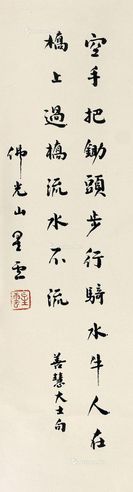 空手把鋤頭步行騎水牛人在
橋上過橋流水不流
善慧大士句
佛光山星雲
星雲